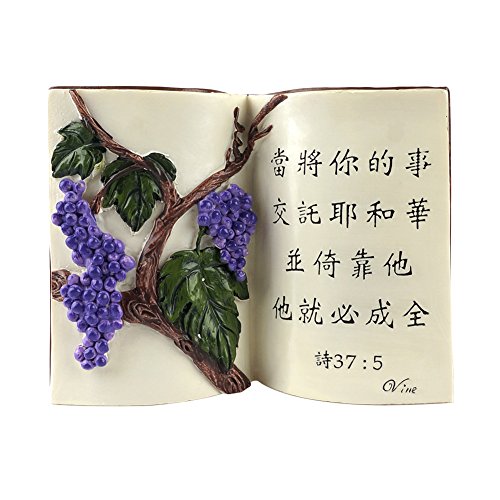 當將你的事
交託耶和華
並倚靠他
他就必成全
詩37:5
Vine